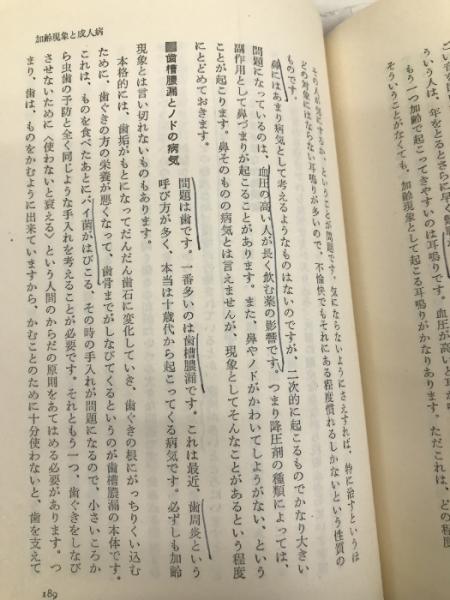 加齢現象と成人病
ういう人は、年をとるとさらに早く
もう一つ加齢で起こってきやすいのは耳鳴りです。血圧が高い
そういうことがなくても、加齢現象として起こる耳鳴りがかなりあります。ただこれは、どの程度
その人が気にするか、ということが問題です。気にならないようにさえすれば、特に治すというほ
どの対象にはならない耳鳴りが多いので、不愉快でもそれにある程度慣れるしかないという性質の
ものです。
鼻にはあまり病気として考えるようなものはないのですが、二次的に起こるものでかなり大きい
問題になっているのは、血圧の高い人が長く飲む薬の影響です。つまり降圧剤の種類によっては、
副作用として鼻づまりが起こることがあります。また、鼻やノドがかわいてしようがない、という
ことが起こります。鼻そのものの病気とは言えませんが、現象としてそんなことがあるという程度
にとどめておきます。
■歯槽膿漏とノドの病気
問題は歯です。一番多いのは歯槽膿漏です。これは最近、歯周炎という
呼び方が多く、本当は十歳代から起こってくる病気です。必ずしも加齢
現象とは言い切れないものもあります。
本格的には、歯垢がもとになってだんだん歯石に変化していき、歯ぐきの根にがっちりくい込む
ために、歯ぐきの方の栄養が悪くなって、歯骨までがしなびてくるというのが歯槽膿漏の本体です。
これは、ものを食べたあとにバイ菌がはびこる、その時の手入れが問題になるので、小さいころか
ら虫歯の予防と全く同じような手入れを考えることが必要です。それともう一つ、歯ぐきをしなび
させないために〈使わないと衰える〉という人間のからだの原則をあてはめる必要があります。つ
まり、歯は、ものをかむように出来ていますから、かむことのために十分使わないと、歯を支えて
189